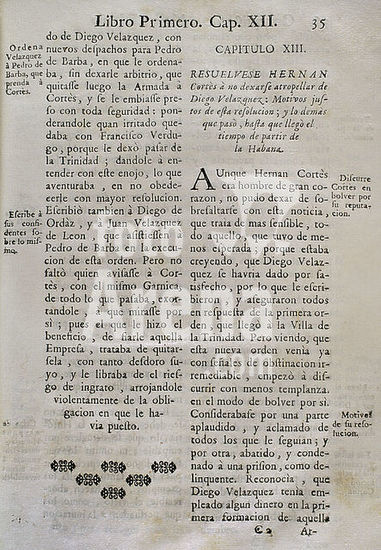 Libro Primero. Cap. XII. 35
Ordena
Velazquez
à Pedro de
Barba, que
prenda à
Cortès.
Escribe à
sus confidentes
sobre lo mismo.
do de Diego Velazquez, con
nuevos despachos para Pedro
de Barba, en que le ordenaba,
sin dexarle arbitrio, que
quitasse luego la Armada à
Cortès, y se le embiasse preso
con toda seguridad: ponderandole
quan irritado quedaba
con Francisco Verdugo,
porque le dexò passar de
la Trinidad; dandole à entender
con este enojo, lo que
aventuraba, en no obedecerle
con mayor resolucion.
Escribiò tambien à Diego de
Ordàz, y à Juan Velazquez
de Leon, que assistiessen à
Pedro de Barba en la execucion
de esta orden. Pero no
faltò quien avisasse à Cortès,
con el mismo Garnica,
de todo lo que passaba,
à que mirasse por
sì; pues el que hizo el
beneficio de darle aquella
Empresa, trataba de quitarsela,
con tanto desdoro suyo,
y le libraba el riesgo
de ingrato, arrojandole
violentamente de la obligacion
en que le havia
puesto.
CAPITULO XIII.
RESUELVESE HERNAN
Cortès à no dexarse atropellar de
Diego Velazquez: Motivos justos
de esta resolucion; y lo demàs
que passò, hasta que llegò el
tiempo de partir de
la Habana.
AUnque Hernan Cortès
era hombre de gran corazon,
no pudo dexar de sobresaltarse
con esta noticia,
que traìa de mas sensible, todo
aquello, que tuvo de menos
esperada; porque estaba
creyendo, que Diego Velazquez
se havria dado por satisfecho,
por lo que le escribieron
y asseguraron todos
en respuesta de la primera orden,
que llegò à la Villa de
la Trinidad. Pero viendo, que
esta nueva orden venìa ya
con señas de obstinacion irremediable,
empezò à discurrir
con menos templanza,
en el modo de bolver por sì.
Considerabase por una parte
aplaudido, y aclamado de
todos los que le seguian; y
por otra, abatido, y condenado
à una prision, como delinquente.
Reconocìa, que
Diego Velazquez tenìa empleado
algun dinero en la primera
formacion de aquella
Discurre
Cortès en
bolver por
su reputacion.
Motivos
de su resolucion.
Ar-